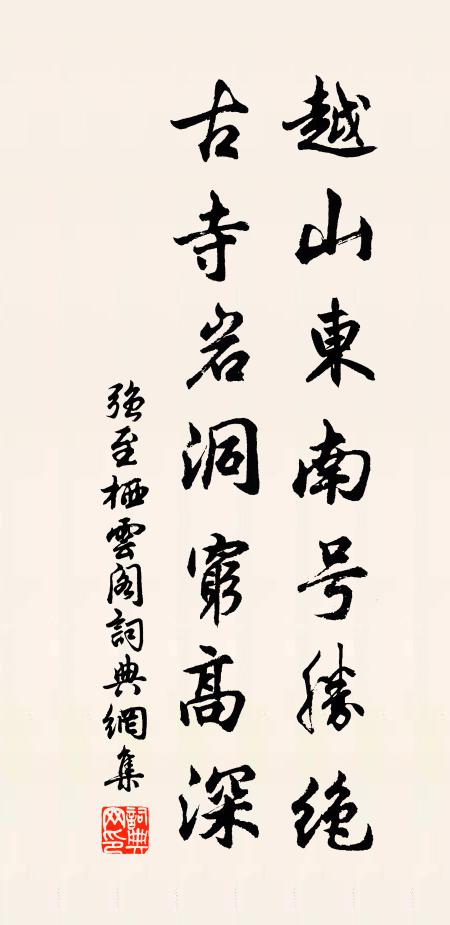 越山東南号勝絶
古寺岩洞窮高深
強至栖雲閣詞典網集
詞典網印